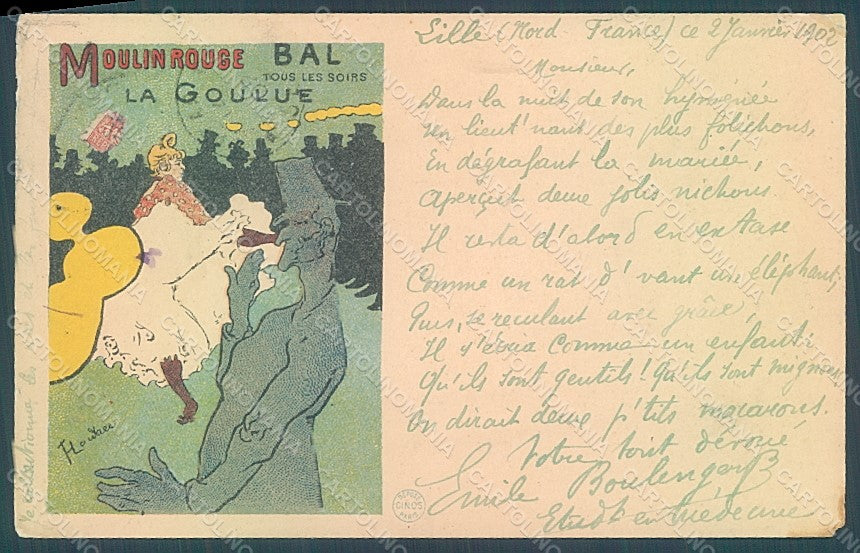 MOULIN ROUGE BAL
TOUS LES SOIRS
LA GOULUE
HTLautrec
Lille (Nord France) ce 2 Janvier 1902
Monsieur,
Dans la nuit de son hyménée
Un lieut'nant des plus folichons,
En dégrafant la mariée,
Aperçut deux jolis nichons.
Il resta d'abord en extase
Comme un rat d'vant un éléphant;
Puis, se reculant avec grâce,
Il s'écria comme un enfant:
Qu'ils sont gentils! Qu'ils sont mignons
On dirait deux p'tits macarons.
Votre tout dévoué
Emile Boulenger
Etudt en Médecine
DÉPOSÉ
GINOS
PARIS
Je collectionne les
CARTOLINOMANIA